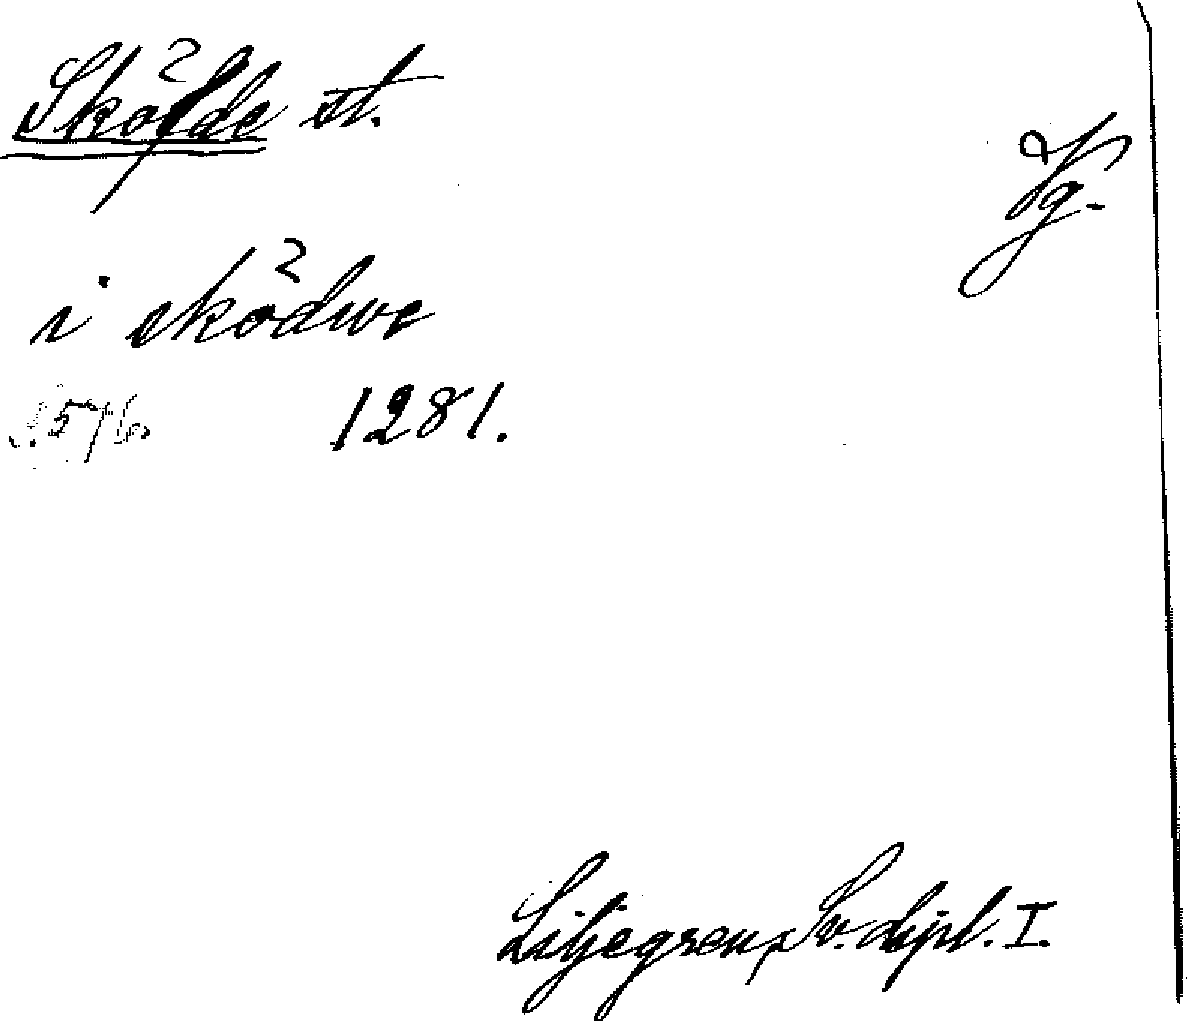 Sköfde st.
Vg.
i sködwe
S. 576. 1281.
Liljegren, Sv. dipl. I.